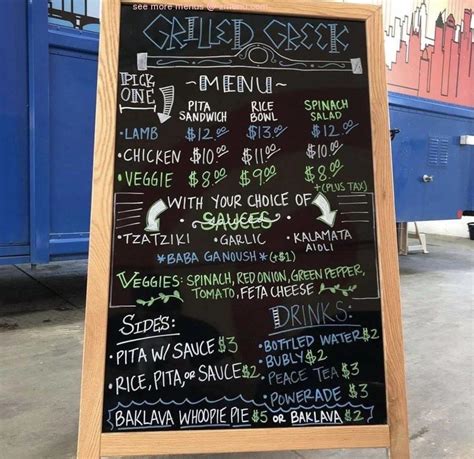 see more menus @
GRILLED GREEK
PICK ONE
~MENU~
PITA SANDWICH RICE BOWL SPINACH SALAD
•LAMB $12.00 $13.00 $12.00
•CHICKEN $10.00 $11.00 $10.00
•VEGGIE $8.00 $9.00 $8.00
+(PLUS TAX)
WITH YOUR CHOICE OF
SAUCES
•TZATZIKI •GARLIC •KALAMATA AIOLI
*BABA GANOUSH* (+$1)
VEGGIES: SPINACH, RED ONION, GREEN PEPPER,
TOMATO, FETA CHEESE
SIDES:
•PITA W/ SAUCE $3
•RICE, PITA, OR SAUCE $2
DRINKS:
•BOTTLED WATER $2
•BUBLY $2
PEACE TEA $3
•POWERADE $3
BAKLAVA WHOOPIE PIE $5 OR BAKLAVA $2